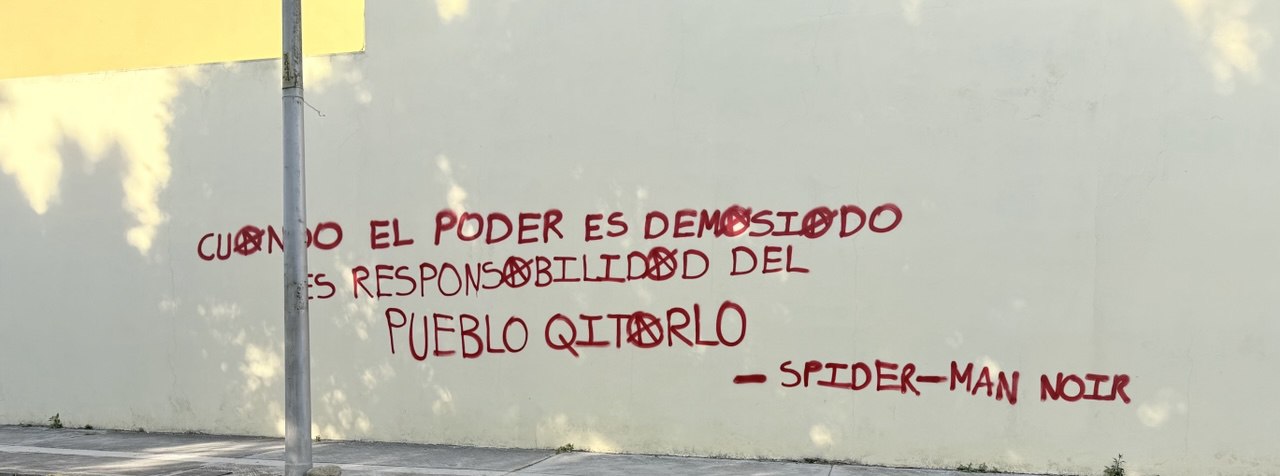 CUANDO EL PODER ES DEMASIADO
ES RESPONSABILIDAD DEL
PUEBLO QITARLO
- SPIDER-MAN NOIR